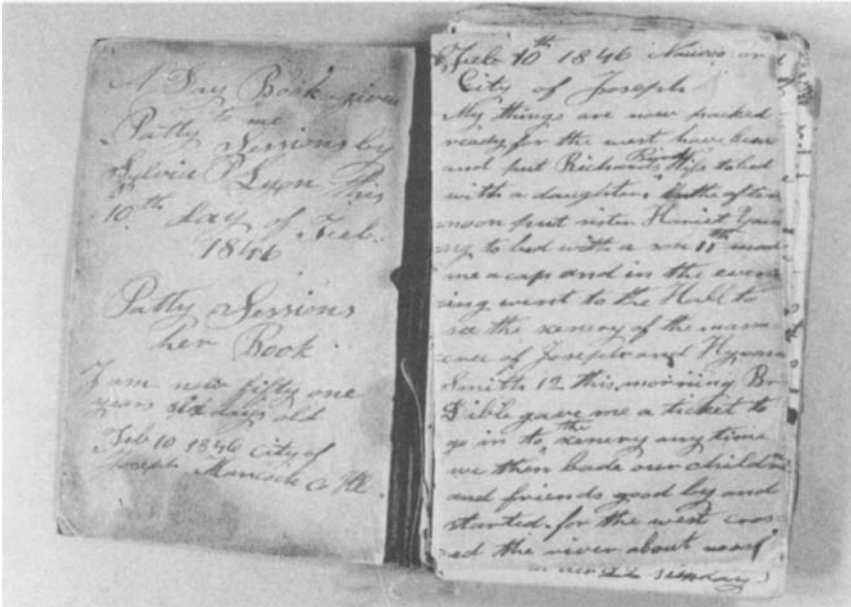 A Day Book given
to me
Patty Sessions by
Sylvia P Lyon This
10th day of Feb.
1846
Patty Sessions
her Book
I am now fifty one
years six days old
Feb 10 1846 City of
Joseph Hancock Co Ill.
Feb 10th 1846 Nauvoo or
City of Joseph
My things are now packed
ready for the west have been
and put Richards wife to bed
with a daughter. In the after
noon put sister Hariet Youn
ng to bed with a son 11th mad
me a cap and in the even
ing went to the Hall to
see the senery of the massa
cree of Joseph and Hyram
Smith 12 this morning Br
Dible gave me a ticket to
go in to the senery any time
we then bade our children
and friends good by and
started for the west cros
ed the river about noon